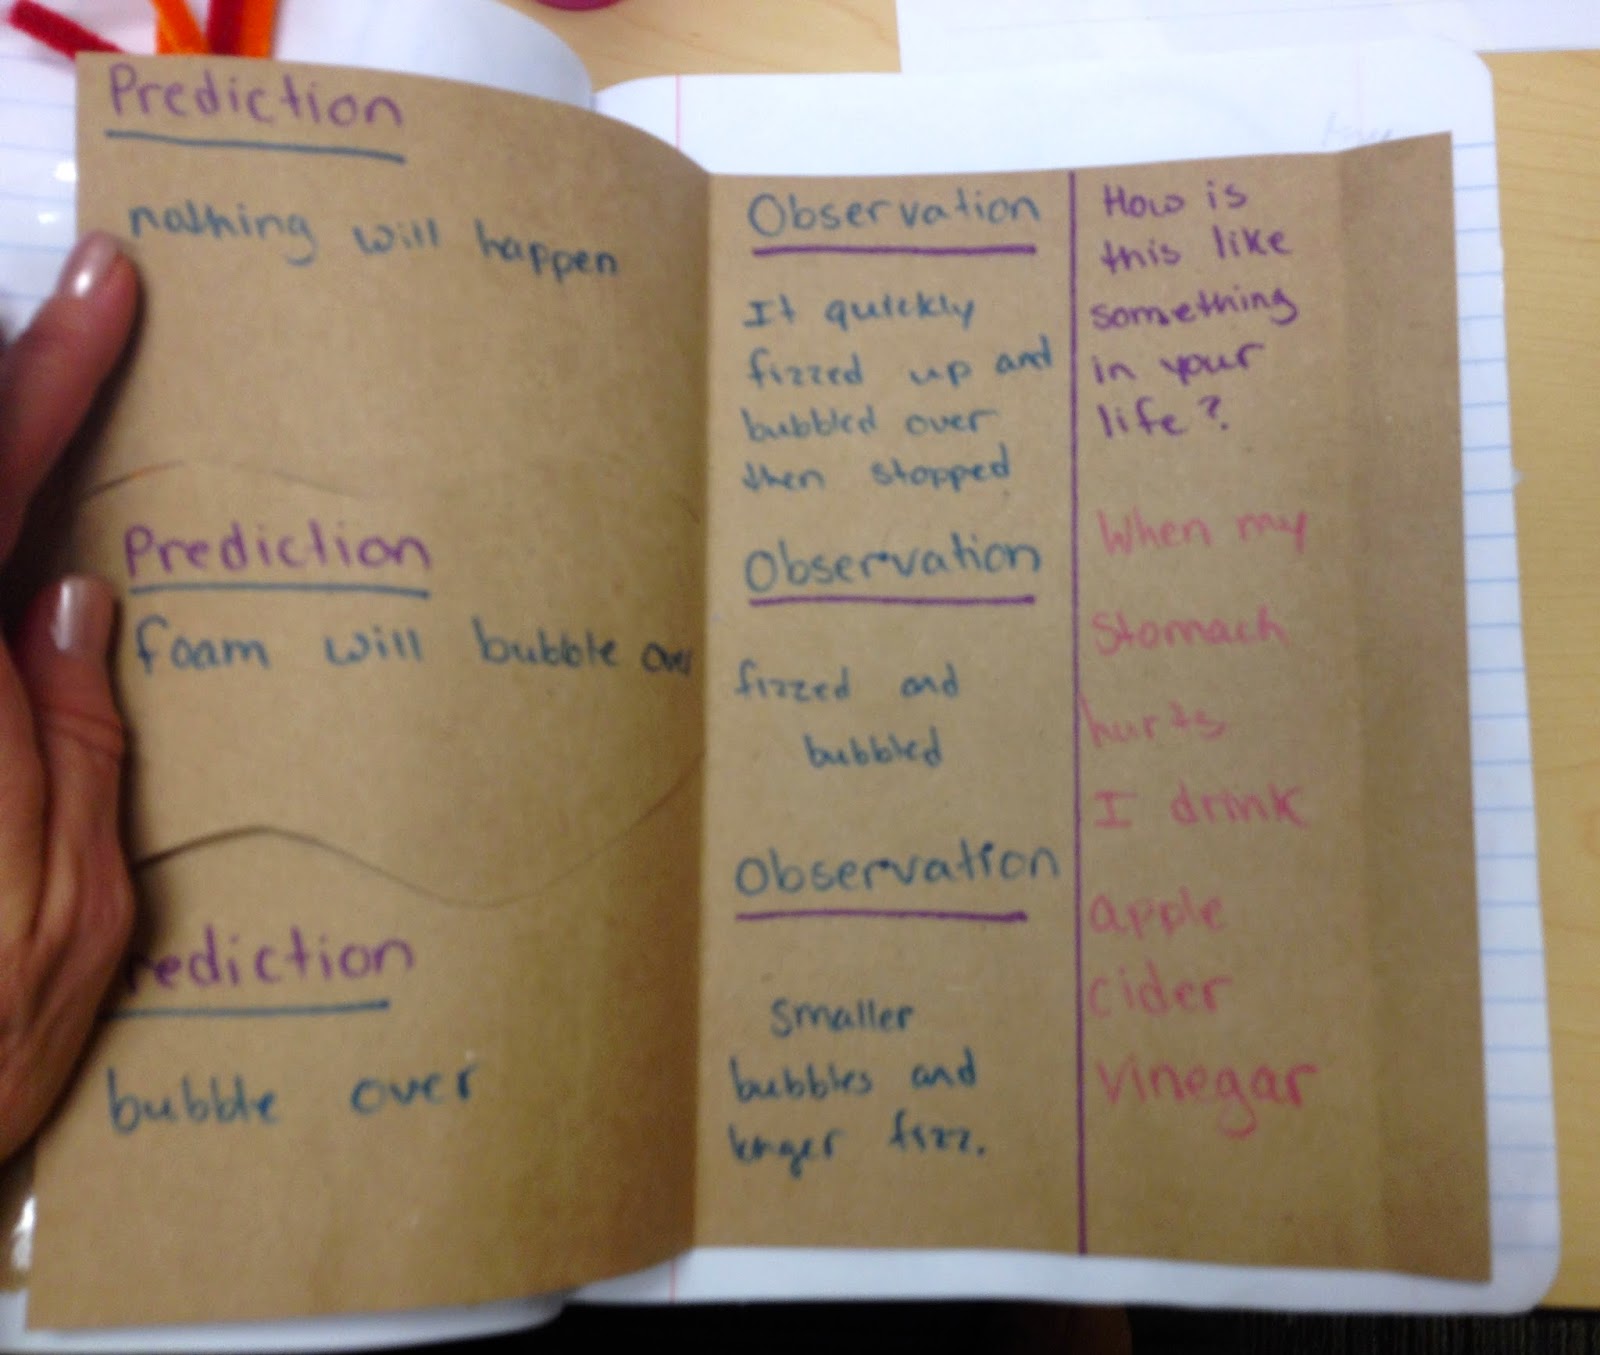 Prediction
nothing will happen
Prediction
foam will bubble over
rediction
bubble over
Observation
It quickly
fizzed up and
bubbled over
then stopped
Observation
fizzed and
bubbled
Observation
smaller
bubbles and
longer fizz.
How is
this like
something
in your
life?
When my
Stomach
hurts
I drink
apple
cider
vinegar